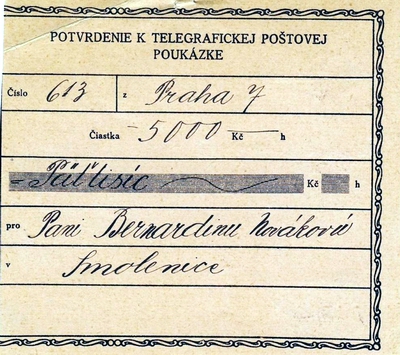 POTVRDENIE K TELEGRAFICKEJ POŠTOVEJ
POUKÁZKE
Číslo 613 z Praha 7
Čiastka -5000- Kč h
= Päťtisíc Kč h
pro Pani Bernardinu Novákovú
v Smolenice